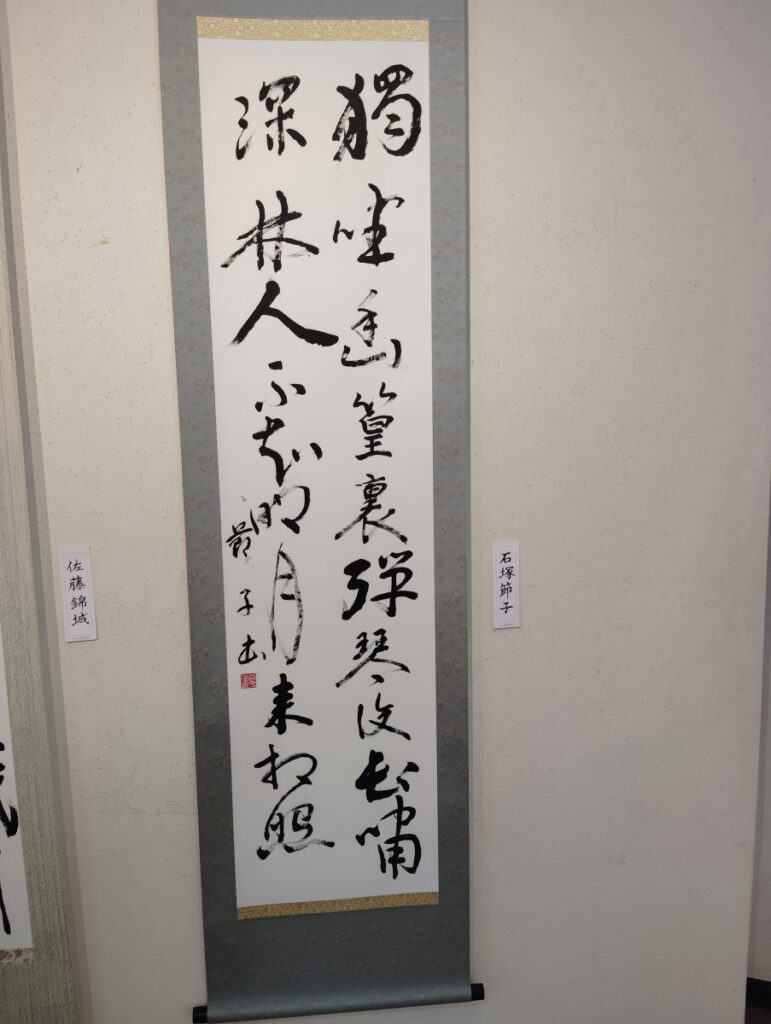 獨坐幽篁裏彈琴復長嘯
深林人不知明月来相照
節子書
石塚節子
佐藤錦城